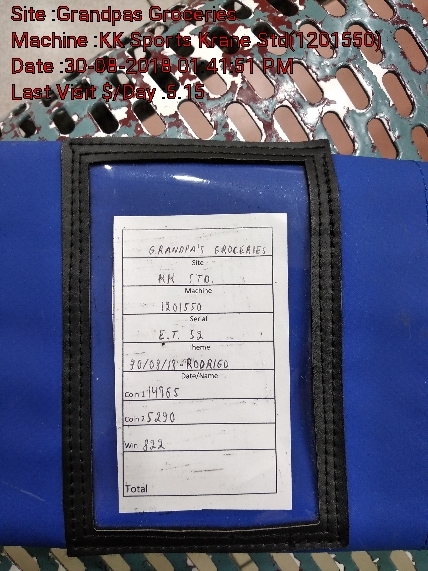 Site :Grandpas Groceries
Machine :KK Sports Krane Std(1201550)
Date :30-08-2019 01:41:51 PM
Last Visit $/Day :8.15
GRANDPA'S GROCERIES
Site
KK STD.
Machine
1201550
Serial
E.T. 52
Theme
30/08/19-RODRIGO
Date/Name
Coin 1 14965
Coin 2 5290
Win 822
Total